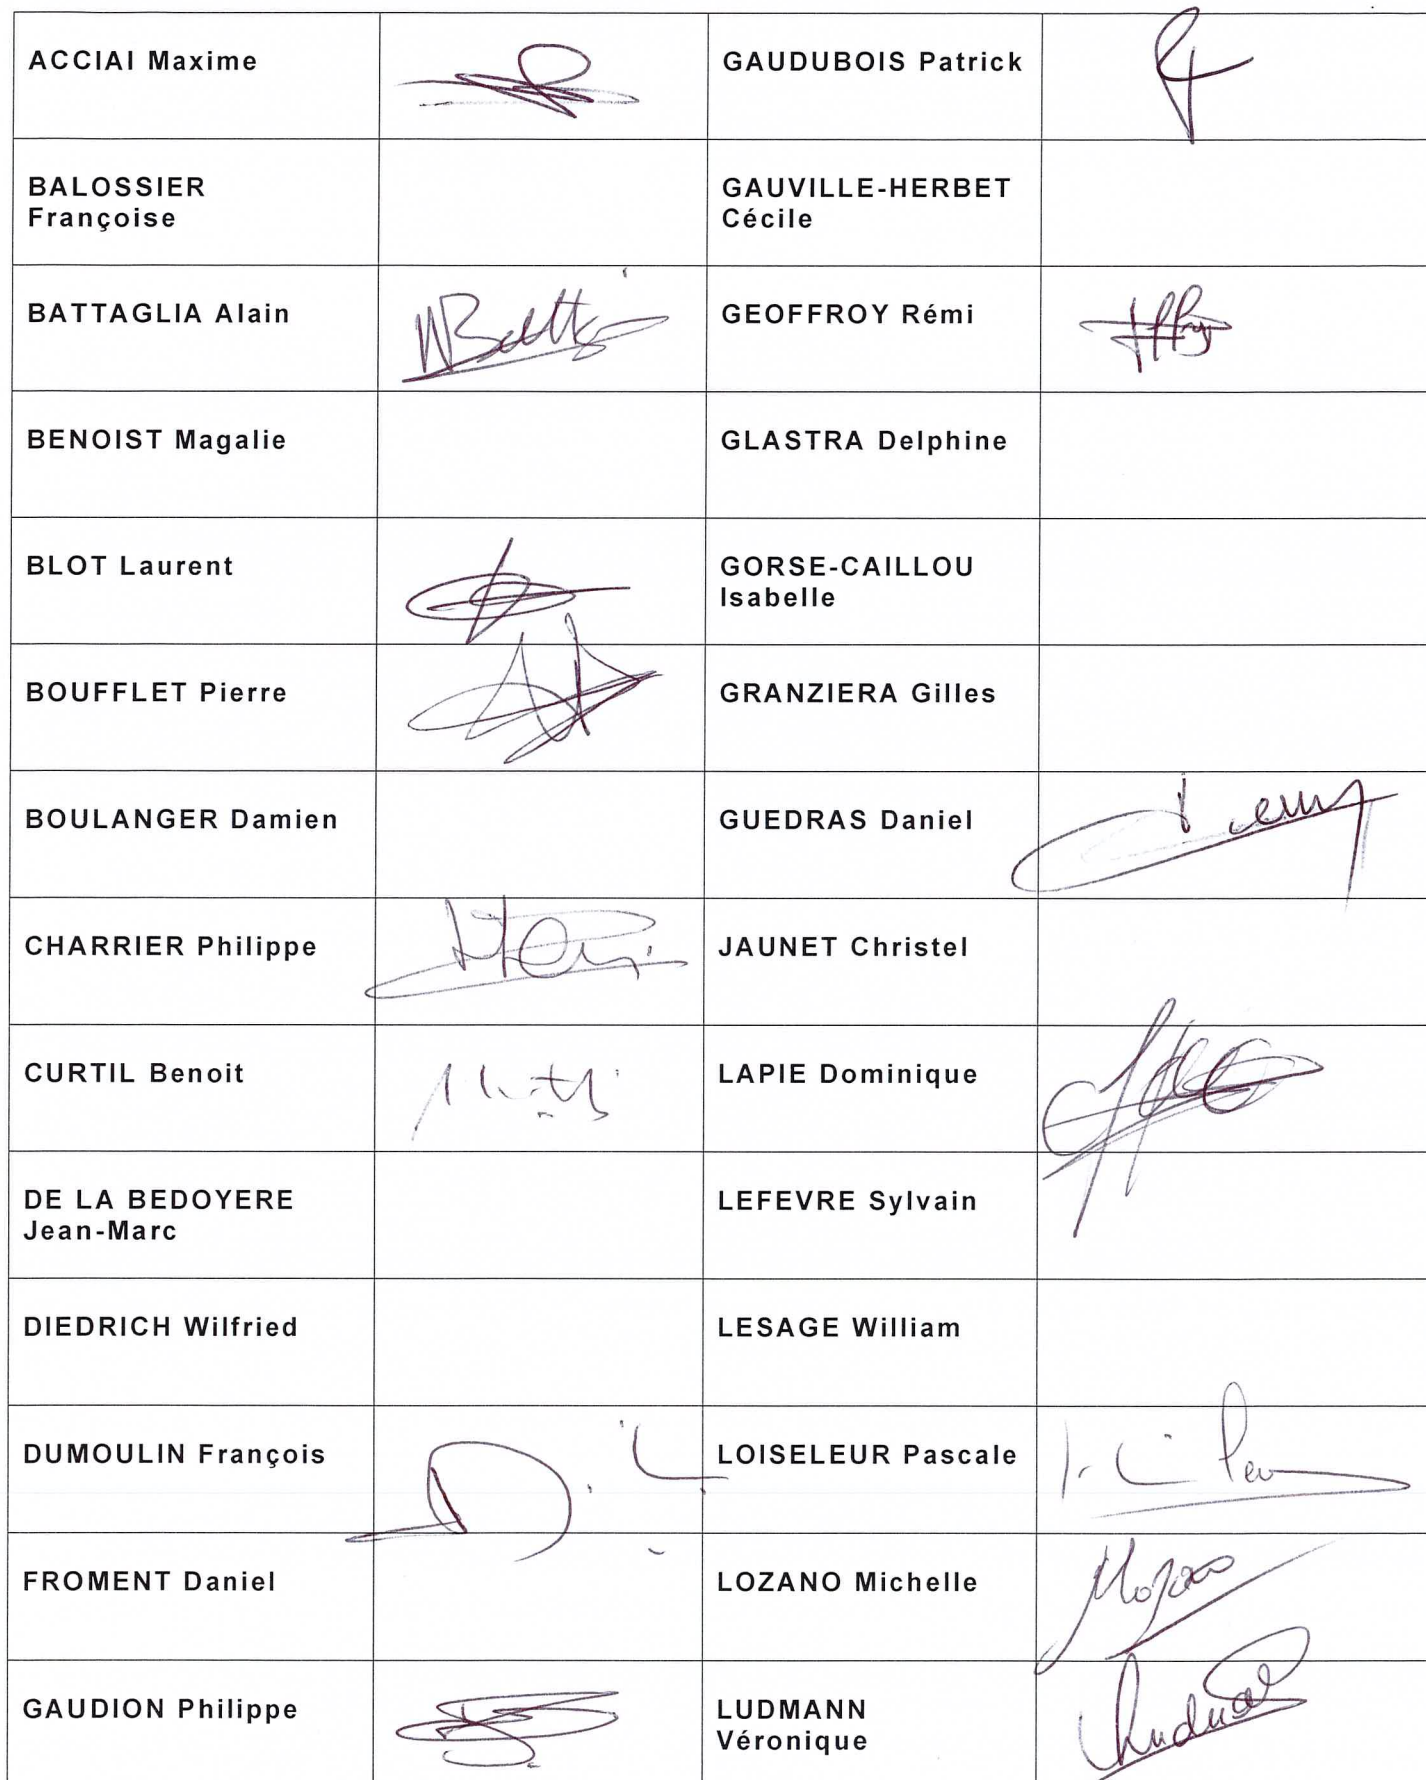 ACCIAI Maxime
GAUDUBOIS Patrick
BALOSSIER
Françoise
GAUVILLE-HERBET
Cécile
BATTAGLIA Alain
GEOFFROY Rémi
BENOIST Magalie
GLASTRA Delphine
BLOT Laurent
GORSE-CAILLOU
Isabelle
BOUFFLET Pierre
GRANZIERA Gilles
BOULANGER Damien
GUEDRAS Daniel
CHARRIER Philippe
JAUNET Christel
CURTIL Benoit
LAPIE Dominique
DE LA BEDOYERE
Jean-Marc
LEFEVRE Sylvain
DIEDRICH Wilfried
LESAGE William
DUMOULIN François
LOISELEUR Pascale
FROMENT Daniel
LOZANO Michelle
GAUDION Philippe
LUDMANN
Véronique